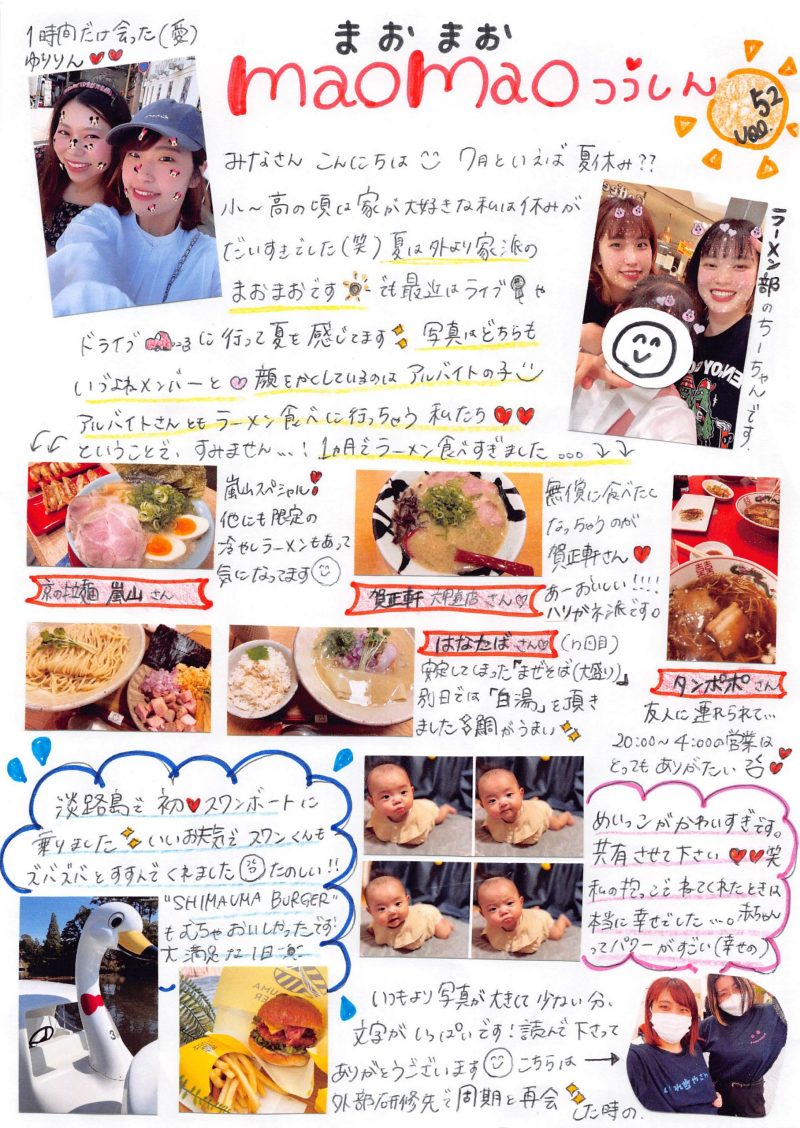 1時間だけ会った(愛)
ゆりりん
まおまお
maomaoつうしん
Vol.52
みなさん こんにちは 7月といえば 夏休み??
小〜高の頃は家が大好きな私は休みが
だいすきでした(笑)夏は外より家派の
まおまおです でも最近はライブや
ドライブに行って夏を感じてます 写真はどちらも
いづよねメンバーと 顔をかくしているのは アルバイトの子
アルバイトさんともラーメン食べに行っちゃう 私たち
ということで、すみません…! 1カ月でラーメン食べすぎました…
ラーメン部のちーちゃんです。
ENJOY
嵐山スペシャル!
他にも限定の
冷やしラーメンもあって
気になってます
京の拉麺 嵐山 さん
無償に食べたく
なっちゃうのが
賀正軒さん
あーおいしい!!!!
ハリガネ派です。
賀正軒 六甲道店 さん
はなたば さん (n回目)
安定してしまった「まぜそば(大盛り)」
別日では「白湯」を頂き
ました 鯛がうまい
タンポポ さん
友人に連れられて…
20:00〜4:00の営業は
とってもありがたい
淡路島で初スワンボートに
乗りました いいお天気で スワンくんも
ズバズバとすすんでくれました たのしい!!
"SHIMAUMA BURGER"
もむちゃおいしかったです
大満足な1日
めいっこがかわいすぎです。
共有させて下さい 笑
私の抱っこでねてくれたときは
本当に幸せでした…。赤ちゃん
ってパワーがすごい(幸せの)
いつもより写真が大きくて少ない分、
文字がいっぱいです!読んで下さって
ありがとうございます こちらは→
外部研修先で周期と再会した時の。